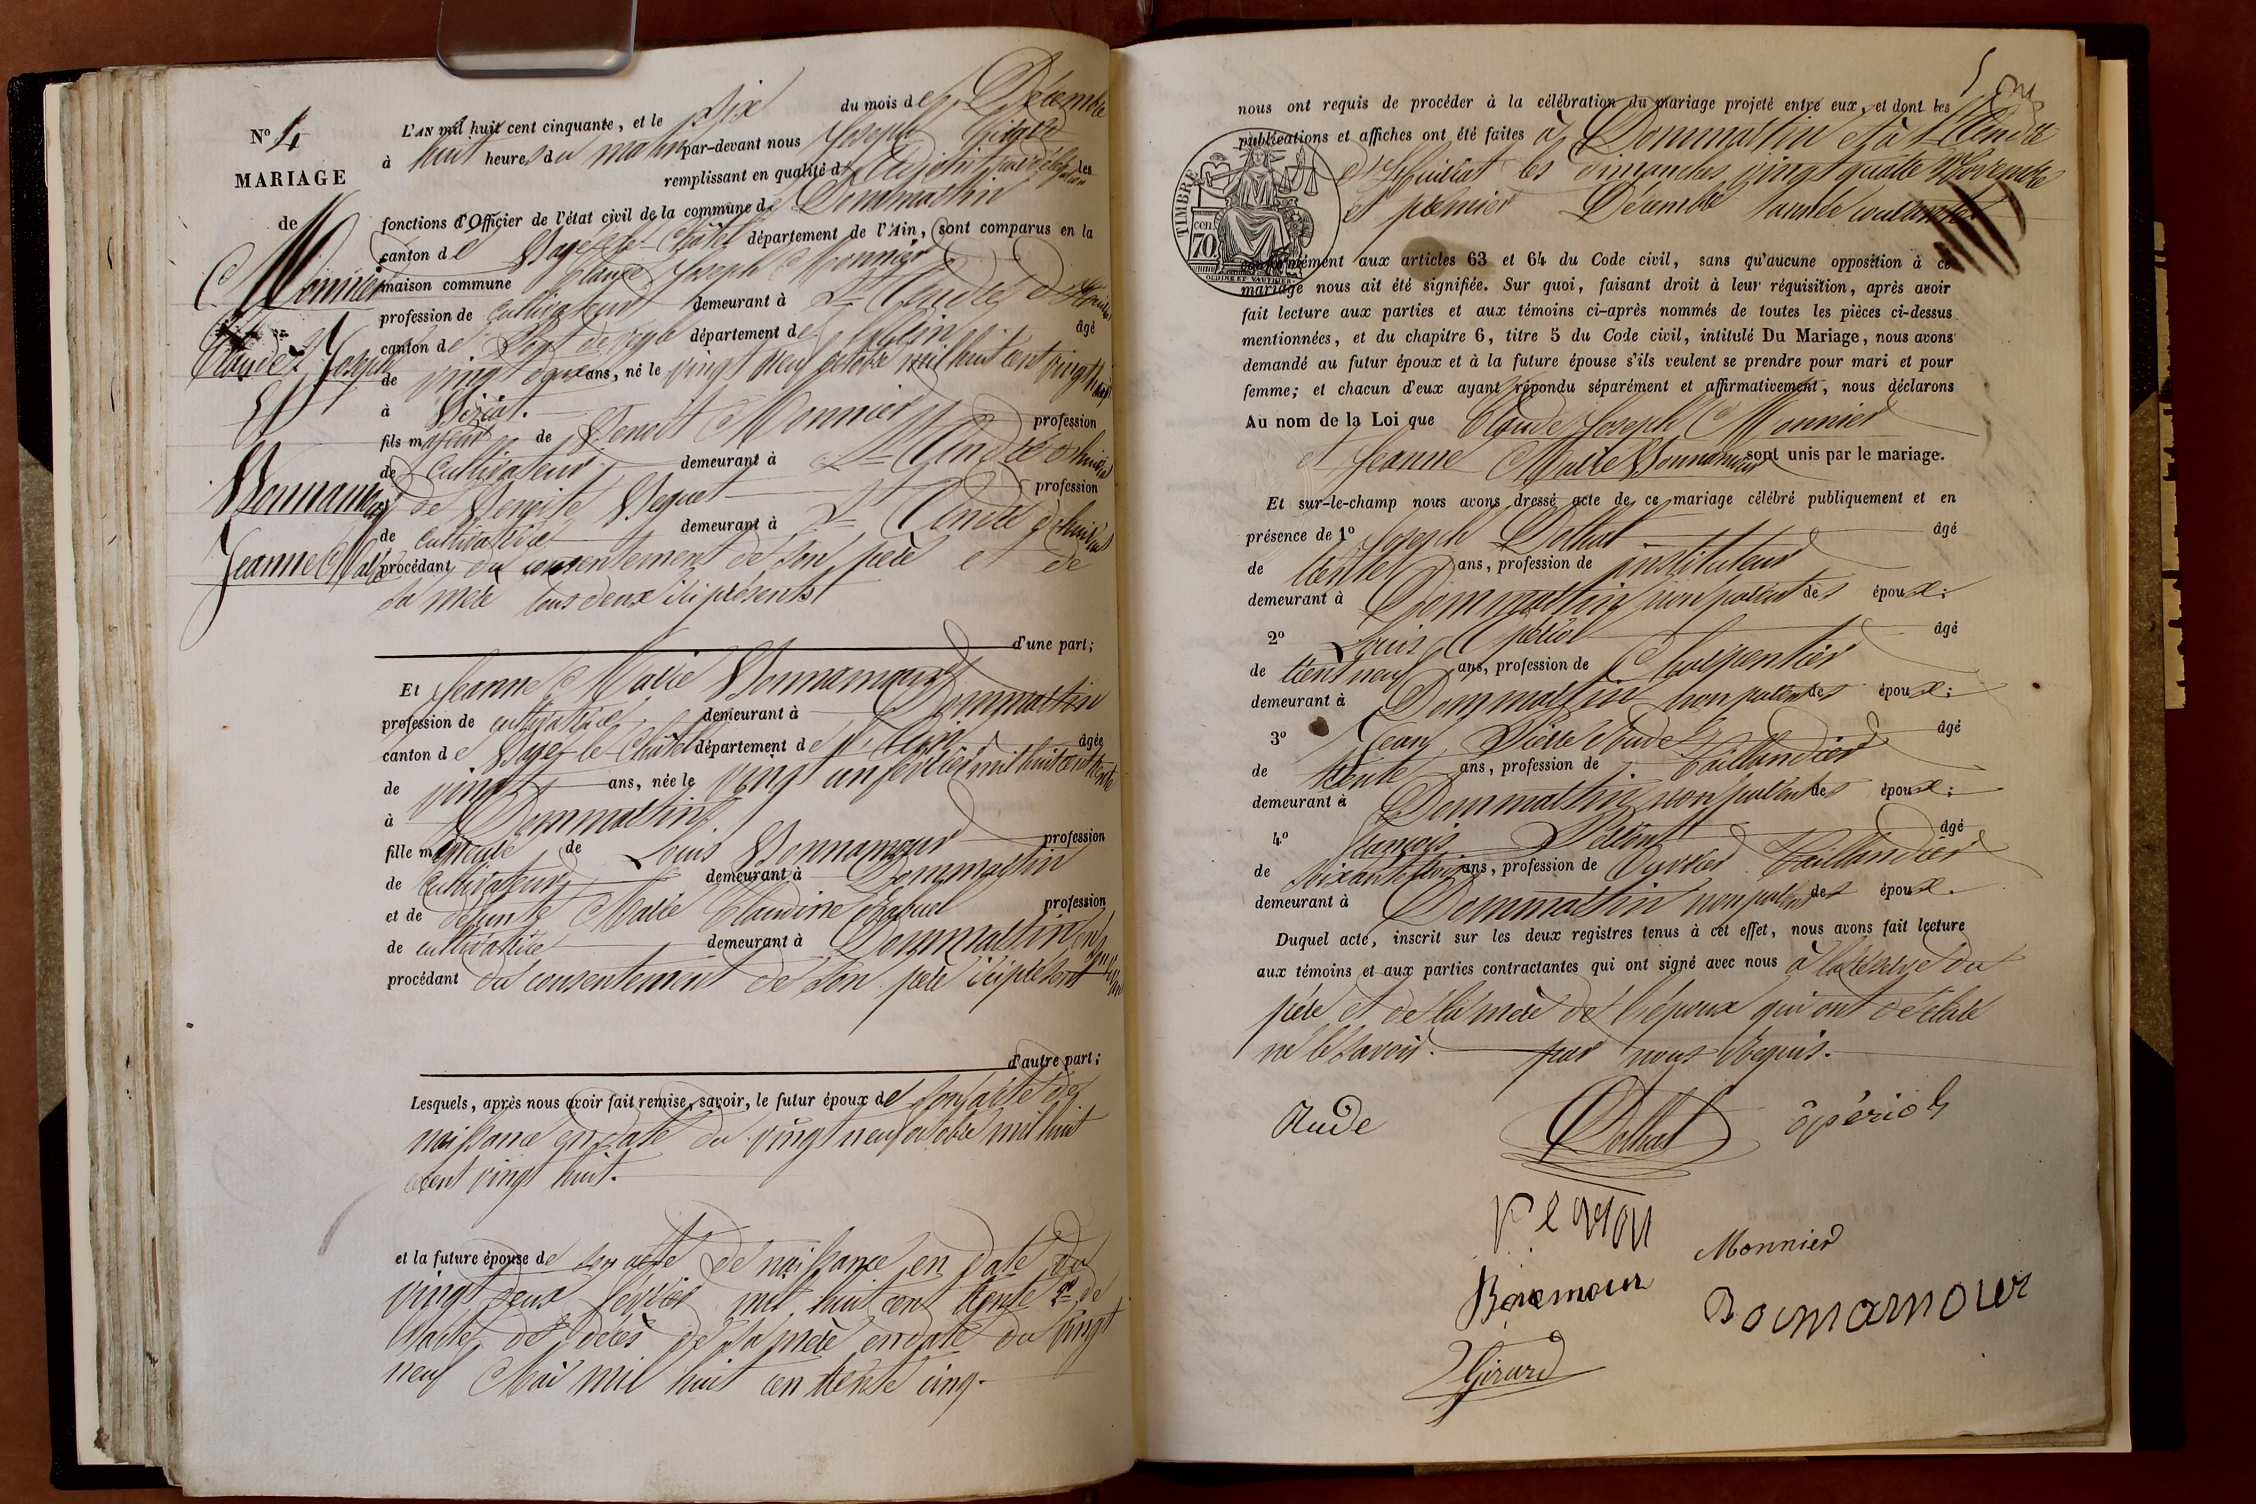 N° 4
MARIAGE
de
Monnier
Claude Joseph
Et
Bonnamour
Jeanne Marie
L'AN mil huit cent cinquante, et le dix du mois de Décembre
à huit heures du matin par-devant nous Joseph Girard
remplissant en qualité d'Adjoint par délégation les
fonctions d'Officier de l'état civil de la commune de Dommartin
canton de Bagé-le-Châtel département de l'Ain, sont comparus en la
maison commune Claude Joseph Monnier
profession de cultivateur demeurant à St André d'huiriat
canton de Pont de veyle département de l'Ain âgé
de vingt deux ans, né le vingt neuf octobre mil huit cent vingt huit
à Biziat.
fils majeur de Benoit Monnier profession
de cultivateur demeurant à St André d'huiriat
et de Benoite profession
de cultivatrice demeurant à St André d'huiriat
procédant du consentement de son père et de
sa mère tous deux ici présents
d'une part;
Et Jeanne Marie Bonnamour
profession de cultivatrice demeurant à Dommartin
canton de Bagé-le-Châtel département de l'Ain âgée
de vingt ans, née le vingt un février mil huit cent trente
à Dommartin
fille mineure de Louis Bonnamour profession
de cultivateur demeurant à Dommartin
et de défunte Marie Claudine profession
de cultivatrice demeurant à Dommartin
procédant du consentement de son père ici présent
d'autre part;
Lesquels, après nous avoir fait remise, savoir, le futur époux de son acte de
naissance en date du vingt neuf octobre mil huit
cent vingt huit.
et la future épouse de son acte de naissance en date du
vingt deux février mil huit cent trente 2° de
l'acte de décès de sa mère en date du vingt
neuf Mai mil huit cent trente cinq.
nous ont requis de procéder à la célébration du mariage projeté entre eux, et dont les
publications et affiches ont été faites à Dommartin et à St André
d'huiriat les dimanches vingt quatre Novembre
et premier Décembre année courante
TIMBRE
70
conformément aux articles 63 et 64 du Code civil, sans qu'aucune opposition à ce
mariage nous ait été signifiée. Sur quoi, faisant droit à leur réquisition, après avoir
fait lecture aux parties et aux témoins ci-après nommés de toutes les pièces ci-dessus
mentionnées, et du chapitre 6, titre 5 du Code civil, intitulé Du Mariage, nous avons
demandé au futur époux et à la future épouse s'ils veulent se prendre pour mari et pour
femme; et chacun d'eux ayant répondu séparément et affirmativement, nous déclarons
Au nom de la Loi que Claude Joseph Monnier
et Jeanne Marie Bonnamour sont unis par le mariage.
Et sur-le-champ nous avons dressé acte de ce mariage célébré publiquement et en
présence de 1° Joseph Dolhat âgé
de trente ans, profession de instituteur
demeurant à Dommartin non parent des époux;
2° Louis Apériol âgé
de trent neuf ans, profession de Charpentier
demeurant à Dommartin non parent des époux;
3° Jean Pierre Rude âgé
de trente ans, profession de Taillandier
demeurant à Dommartin non parent des époux;
4° François âgé
de soixante trois ans, profession de Ouvrier Taillandier
demeurant à Dommartin non parent des époux.
Duquel acte, inscrit sur les deux registres tenus à cet effet, nous avons fait lecture
aux témoins et aux parties contractantes qui ont signé avec nous à la réserve du
père et de la mère de l'époux qui ont déclaré
ne le savoir. par nous Requis.
Rude
Dolhat
Monnier
Bonamour
Girard